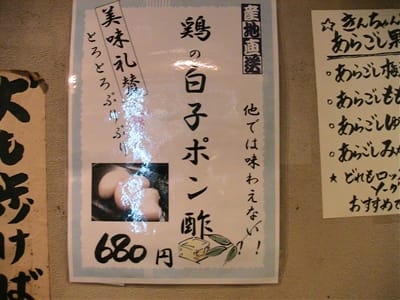 産地直送
鶏の白子ポン酢
他では味わえない!!
美味礼賛
とろとろぷりぷり
680円
犬も歩けば
☆きんちゃん
あらごし果
○あらごし梅
○あらごしもも
○あらごしゆ
○あらごしみか
★どれもロッ
ソーダ
おすすめで